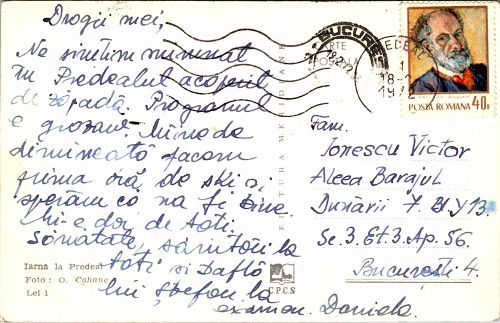 Dragii mei,
Ne simțim minunat
în Predealul acoperit
de zăpadă. Programul
e grozav. Mîine de
dimineață facem
prima oră de ski și
sperăm ca va fi bine.
Mi-e dor de toți.
Sănătate, sărutări la
toți și baftă
lui Ștefan la
examen. Daniela.
Iarna la Predeal
Foto: O. Cohane
Lei 1
EDITURA MERIDIANE
C.P.C.S
BUCUREȘTI
18-2
POSTA ROMANA 40B
Fam.
Ionescu Victor
Aleea Barajul
Dunării 7. Bl Y13.
Sc. 3. Et. 3. Ap. 56.
București 4.